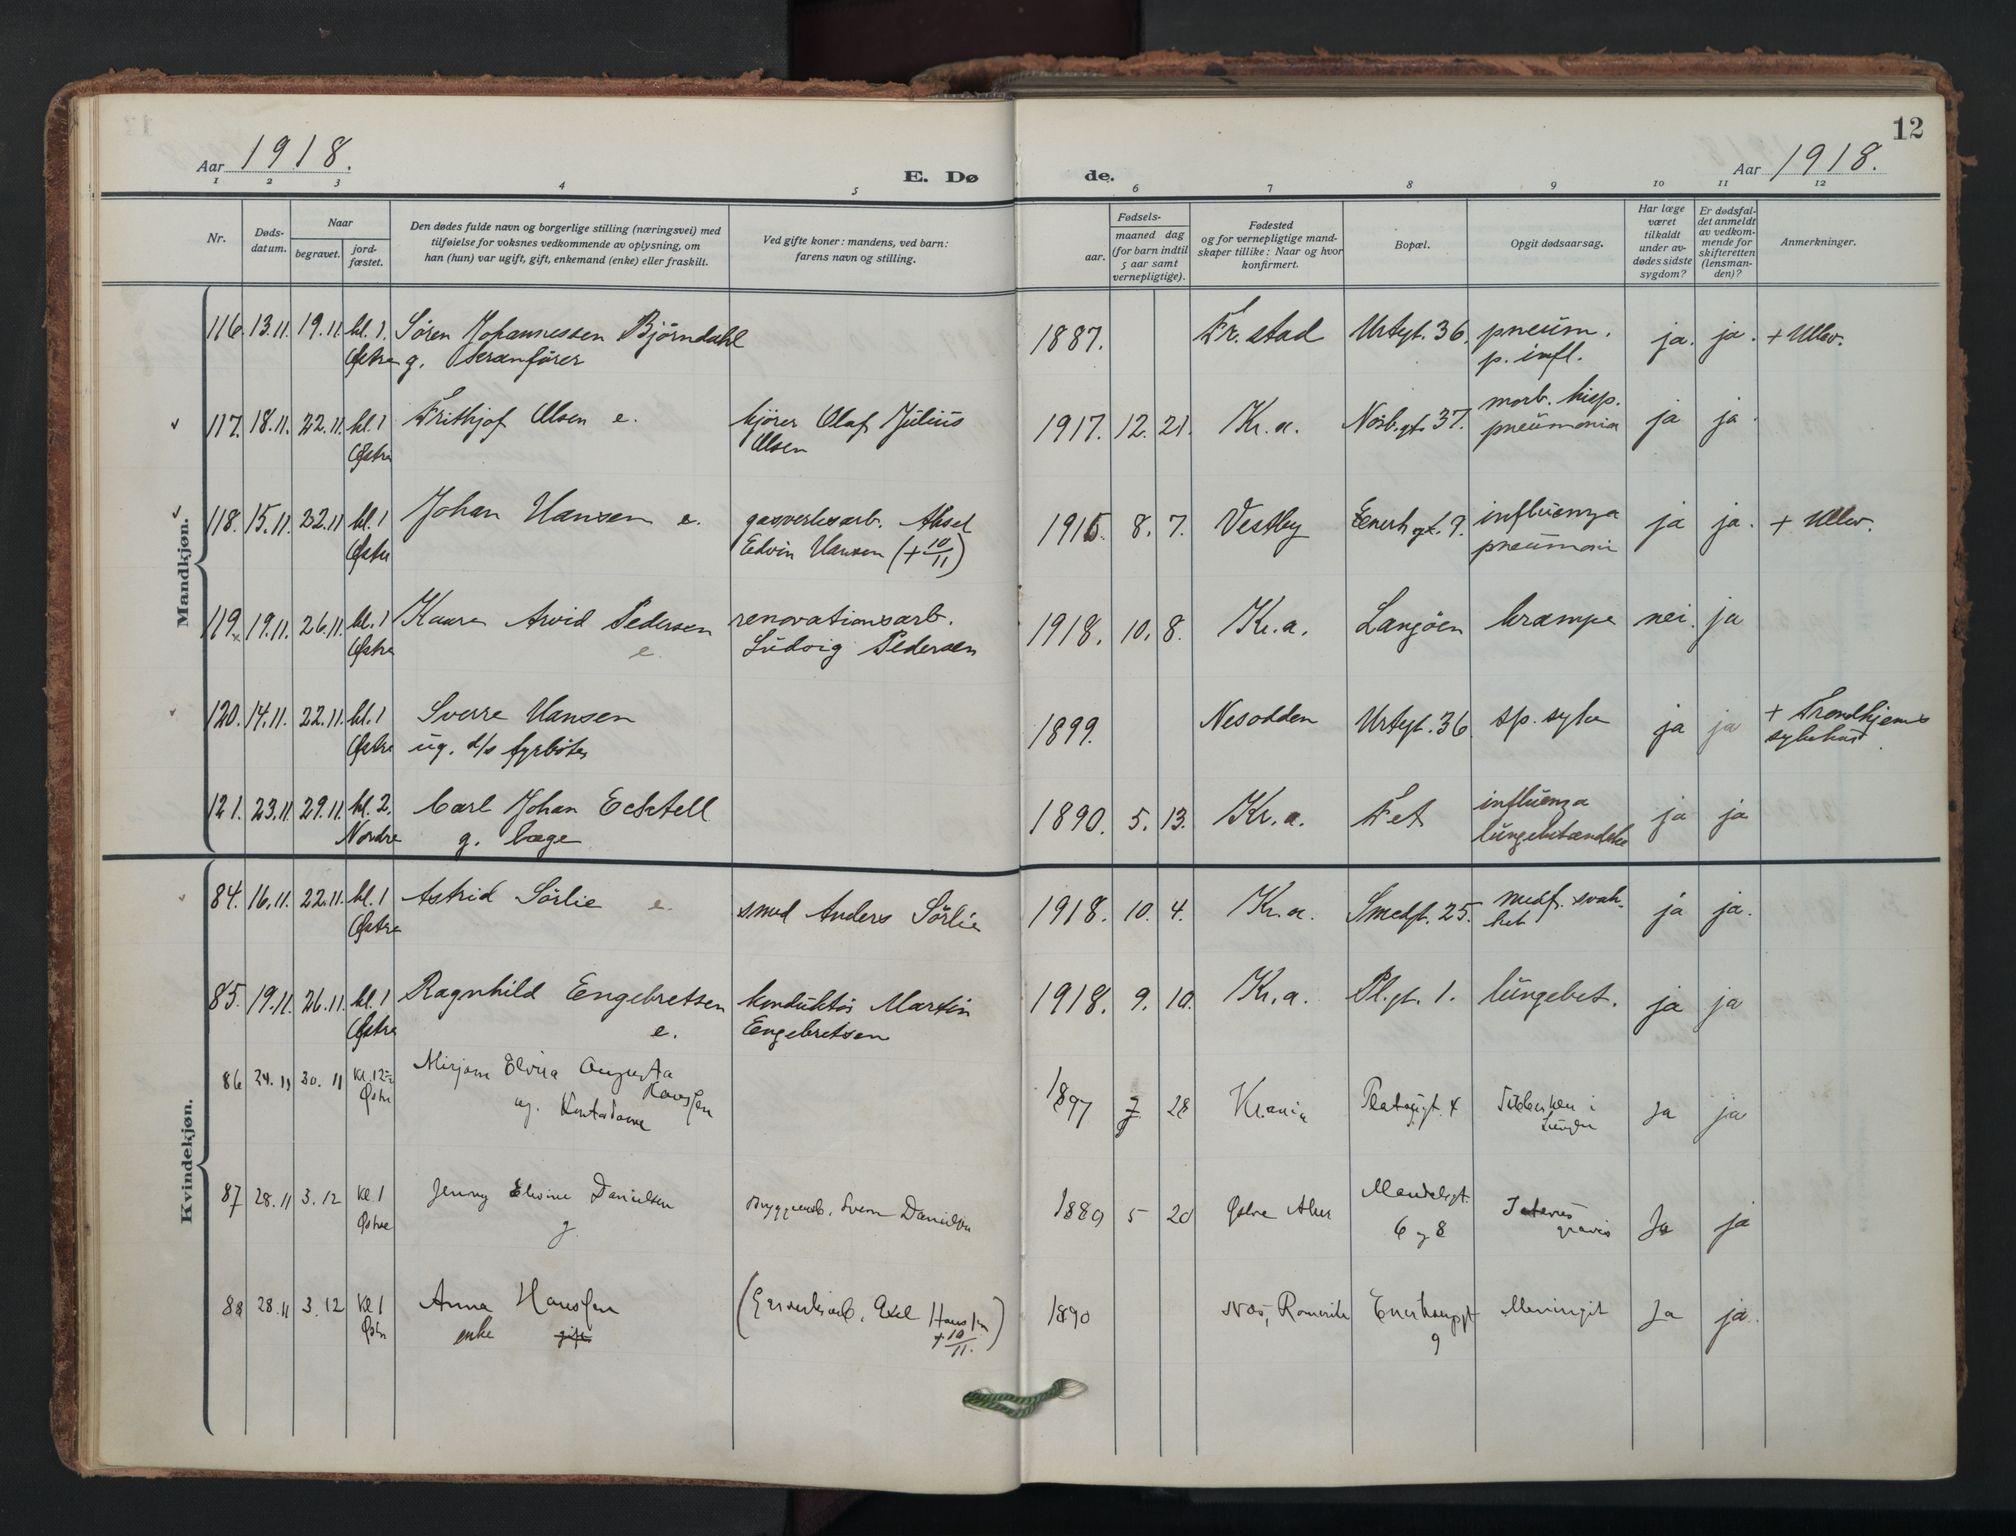 12
Aar 1918.
E. Døde.
Aar 1918.
1 2 3 4 5 6 7 8 9 10 11 12
Nr.
Døds-
datum.
Naar
begravet.
jord-
fæstet.
Den dødes fulde navn og borgerlige stilling (næringsvei) med
tilføielse for voksnes vedkommende av oplysning, om
han (hun) var ugift, gift, enkemand (enke) eller fraskilt.
Ved gifte koner: mandens, ved barn:
farens navn og stilling.
Fødsels-
aar.
maaned dag
(for barn indtil
5 aar samt
vernepligtige).
Fødested
og for vernepligtige mand-
skaper tillike: Naar og hvor
konfirmert.
Bopæl.
Opgit dødsaarsag.
Har læge
været
tilkaldt
under av-
dødes sidste
sygdom?
Er dødsfal-
det anmeldt
av vedkom-
mende for
skifteretten
(lensman-
den)?
Anmerkninger.
Mandkjøn.
116. 13.11. 19.11. kl. 1. Søren Johannessen Bjørndahl 1887. Fr.stad Urtegt. 36. pneum. ja. ja. + Ullev.
Østre g. kranfører p. infl.
117. 18.11. 22.11. kl. 1 Frithjof Olsen e. kjører Olaf Julius 1917. 12. 21. Kr.a. Norb.gt. 37. morb. hisp. ja ja.
Østre Olsen pneumonia
118. 15.11. 22.11. kl. 1 Johan Hansen e. gasverksarb. Aksel 1916. 8. 7. Vestby Enerh.gt. 9. influenza ja ja. + Ullev.
Østre Edvin Hansen (+ 10/11) pneumoni
119. 19.11. 26.11. kl. 1 Kaare Arvid Pedersen renovationsarb. 1918. 10. 8. Kr.a. Langøen krampe nei. ja
Østre e. Ludvig Pedersen
120. 14.11. 22.11. kl. 1 Sverre Hansen 1899. Nesodden Urtegt. 36. sp. syke ja ja + Trondhjems
Østre ug. d/s fyrbøter sykehus
121. 23.11 29.11. kl. 2. Carl Johan Ecktell 1890. 5. 13. Kr.a. Fet influenza ja ja
Nordre g. læge lungebetændelse
Kvindekjøn.
84. 16.11. 22.11. kl. 1 Astrid Sørlie e. smed Anders Sørlie 1918. 10. 4. Kr.a. Smedgt. 25. medf. svak- ja ja.
Østre het
85. 19.11. 26.11. kl. 1 Ragnhild Engebretsen konduktør Martin 1918. 9. 10. Kr.a. Pl.gt. 1. lungebet. ja ja
Østre e. Engebretsen
86 24.11 30.11 Kl. 12 Mirjam Elvira Augusta 1897 7 28 Kr.ania Platougt. 4 Tuberkler i Ja ja
Østre Hanssen Lunger
ug. Kontordame
87 28.11 3.12 Kl. 1 Jenny Elvine Danielsen Bryggearb. Svem Danielsen 1880 5 20 Østre Aker Mandalsgt. Icterus Ja ja
Østre g. 6 og 8 gravis
88 28.11 3.12 Kl 1 Anna Hanssen (Gasverksarb. Axel Hanssen 1890 Nes, Romerike Enerhauggt Meningit Ja ja.
Østre enke gift + 10/11.) 9